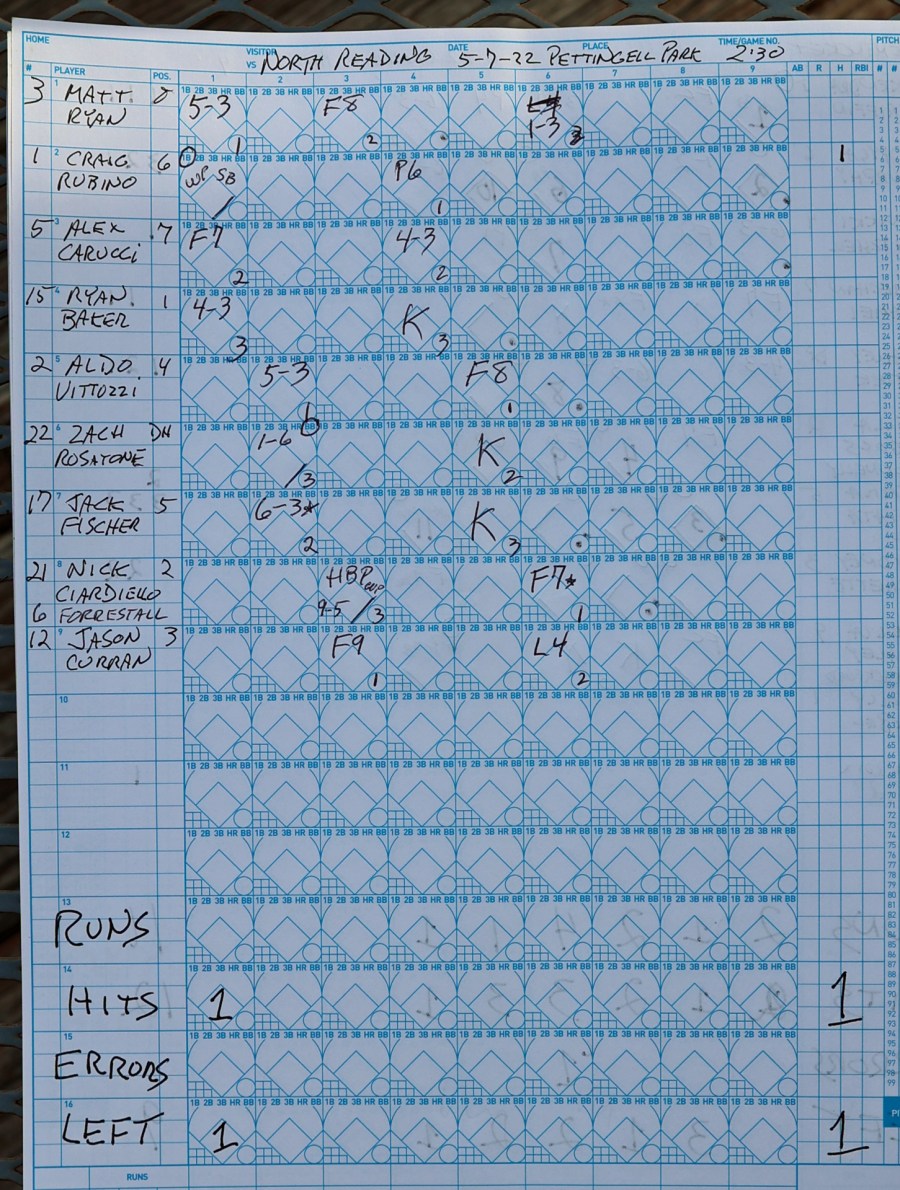 HOME
VISITOR VS NORTH READING DATE 5-7-22 PLACE PETTINGELL PARK TIME/GAME NO. 2:30 PITCH
# PLAYER POS. 1 2 3 4 5 6 7 8 9 AB R H RBI # #
3 1 MATT RYAN 8 5-3 1 F8 2 1-3 3
1 2 CRAIG RUBINO 6 WP SB P6 1 1
5 3 ALEX CARUCCI 7 F7 2 4-3 2
15 4 RYAN BAKER 1 4-3 3 K 3
2 5 ALDO VITTOZZI 4 5-3 F8 1
22 6 ZACH ROSATONE DH 1-6 /3 K 2
17 7 JACK FISCHER 5 6-3* 2 K 3
21 8 NICK CIARDIELLO 2 HBP WP 9-5 /3 F7* 1
6 FORRESTALL
12 9 JASON CURRAN 3 F9 1 L4 2
10
11
12
13
RUNS
14
HITS 1 1
15
ERRORS
16
LEFT 1 1
RUNS